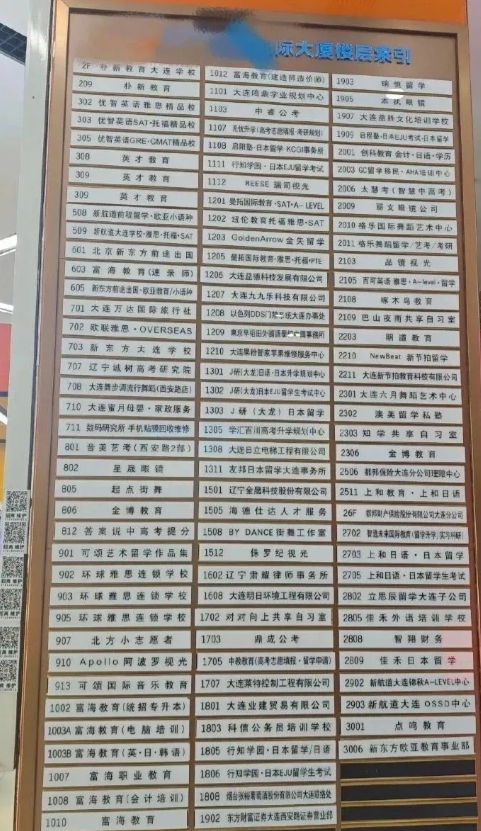 际大厦楼层索引
2F 朴新教育大连学校
209 朴新教育
302 优智英语雅思精品校
303 优智英语SAT·托福精品校
305 优智英语GRE·GMAT精品校
308 英才教育
309 英才教育
309 英才教育
508 新航道前程留学·欧亚小语种
509 新航道大连学校·雅思·托福·SAT
601 北京新东方前途出国
603 富海教育(速录师)
605 新东方前途出国·欧亚教育/小语种
701 大连万达国际旅行社
702 欧联雅思·OVERSEAS
703 新东方大连学校
707 辽宁诚树高考研究院
708 大连舞步调流行舞蹈(西安路店)
710 大连蜜月母婴·家政服务
711 数码研究所 手机贴膜回收维修
801 音美艺考(西安路2部)
802 星晟眼镜
805 起点街舞
806 金博教育
812 答案说中高考提分
901 可颂艺术留学作品集
902 环球雅思连锁学校
903 环球雅思连锁学校
905 环球雅思连锁学校
907 北方小志愿者
910 Apollo 阿波罗视光
913 可颂国际音乐教育
1002 富海教育(统招专升本)
1003A 富海教育(电脑培训)
1003B 富海教育(英·日·韩语)
1007 富海职业教育
1008 富海教育(会计培训)
1010 富海教育
1012 富海教育(建造师造价师)
1101 大连鸣鼎学业规划中心
1103 中睿公考
1107 无忧升学(高考志愿填报·考研规划)
1108 启程塾·日本留学 KCGI事务所
1111 行知学园·日本EJU留学考试
1112 REESE 瑞司视光
1201 曼拓国际教育·SAT·A-LEVEL
1202 域伦教育托福雅思·SAT
1203 GoldenArrow 金矢留学
1205 曼拓国际教育·雅思·托福·PTE
1206 大连益德科技发展有限公司
1207 大连九九乐科技有限公司
1208 以色列DDS门禁系统大连办事处
1210 大连果粉管家苹果维修服务中心
1301 J研(大龙)日语·日本升学规划中心
1302 J研(大龙)日语·EJU留学生考试中心
1303 J研(大龙)日本留学
1305 学汇百川高考升学规划中心
1308 大连日立电梯工程有限公司
1311 友邦日本留学大连事务所
1501 辽宁金晟科技股份有限公司
1505 海德仕达人才服务
1508 BY DANCE街舞工作室
1512 侏罗纪视光
1602 辽宁肃耀律师事务所
1608 大连明日环境工程有限公司
1702 对对向上共享自习室
1703 鼎成公考
1705 中教教育(高考志愿填报·留学申请)
1707 大连莱特控制工程有限公司
1801 大连业建贸易有限公司
1803 科信公务员培训学校
1805 行知学园·日本留学/日语
1806 行知学园·日本EJU留学生考试
1808 烟台张裕葡萄酿酒股份有限公司大连联络处
1902 东方财富证券大连西安路证券营业部
1903 瑞恒留学
1905 眼镜
1907 大连品胜文化培训学校
1909 启程塾·日本EJU考试·日本留学
2001 创科教育 会计·日语·学历
2003 GC留学移民·AHA培训中心
2006 大慧考(智慧中高考)
2009 亚文眼镜公司
2010 格乐国际舞蹈艺术中心
2011 格乐舞蹈留学/艺考/考研
2103 品镜视光
2105 百可英语 雅思·A-level·留学
2108 啄木鸟教育
2109 巴山夜雨共享自习室
2203 明道教育
2210 NewBeat 新节拍留学
2211 大连新节拍教育科技有限公司
2301 大连六月舞蹈艺术中心
2302 澳美留学私塾
2303 知学共享自习室
2306 金博教育
2506 都邦保险大连分公司理赔中心
2511 上和教育·上和日语
26F 都邦财产保险股份有限公司大连分公司
2702 智造未来国际教育(留学升学,实习科研)
2703 上和日语·日本留学
2705 上和日语·日本留学生考试
2802 立思辰留学大连子公司
2805 佳禾外语培训学校
2808 智翔财务
2809 佳禾日本留学
2902 新航道大连锦秋A-LEVEL中心
2903 新航道大连 OSSD中心
3001 点鸣教育
3006 新东方欧亚教育事业部